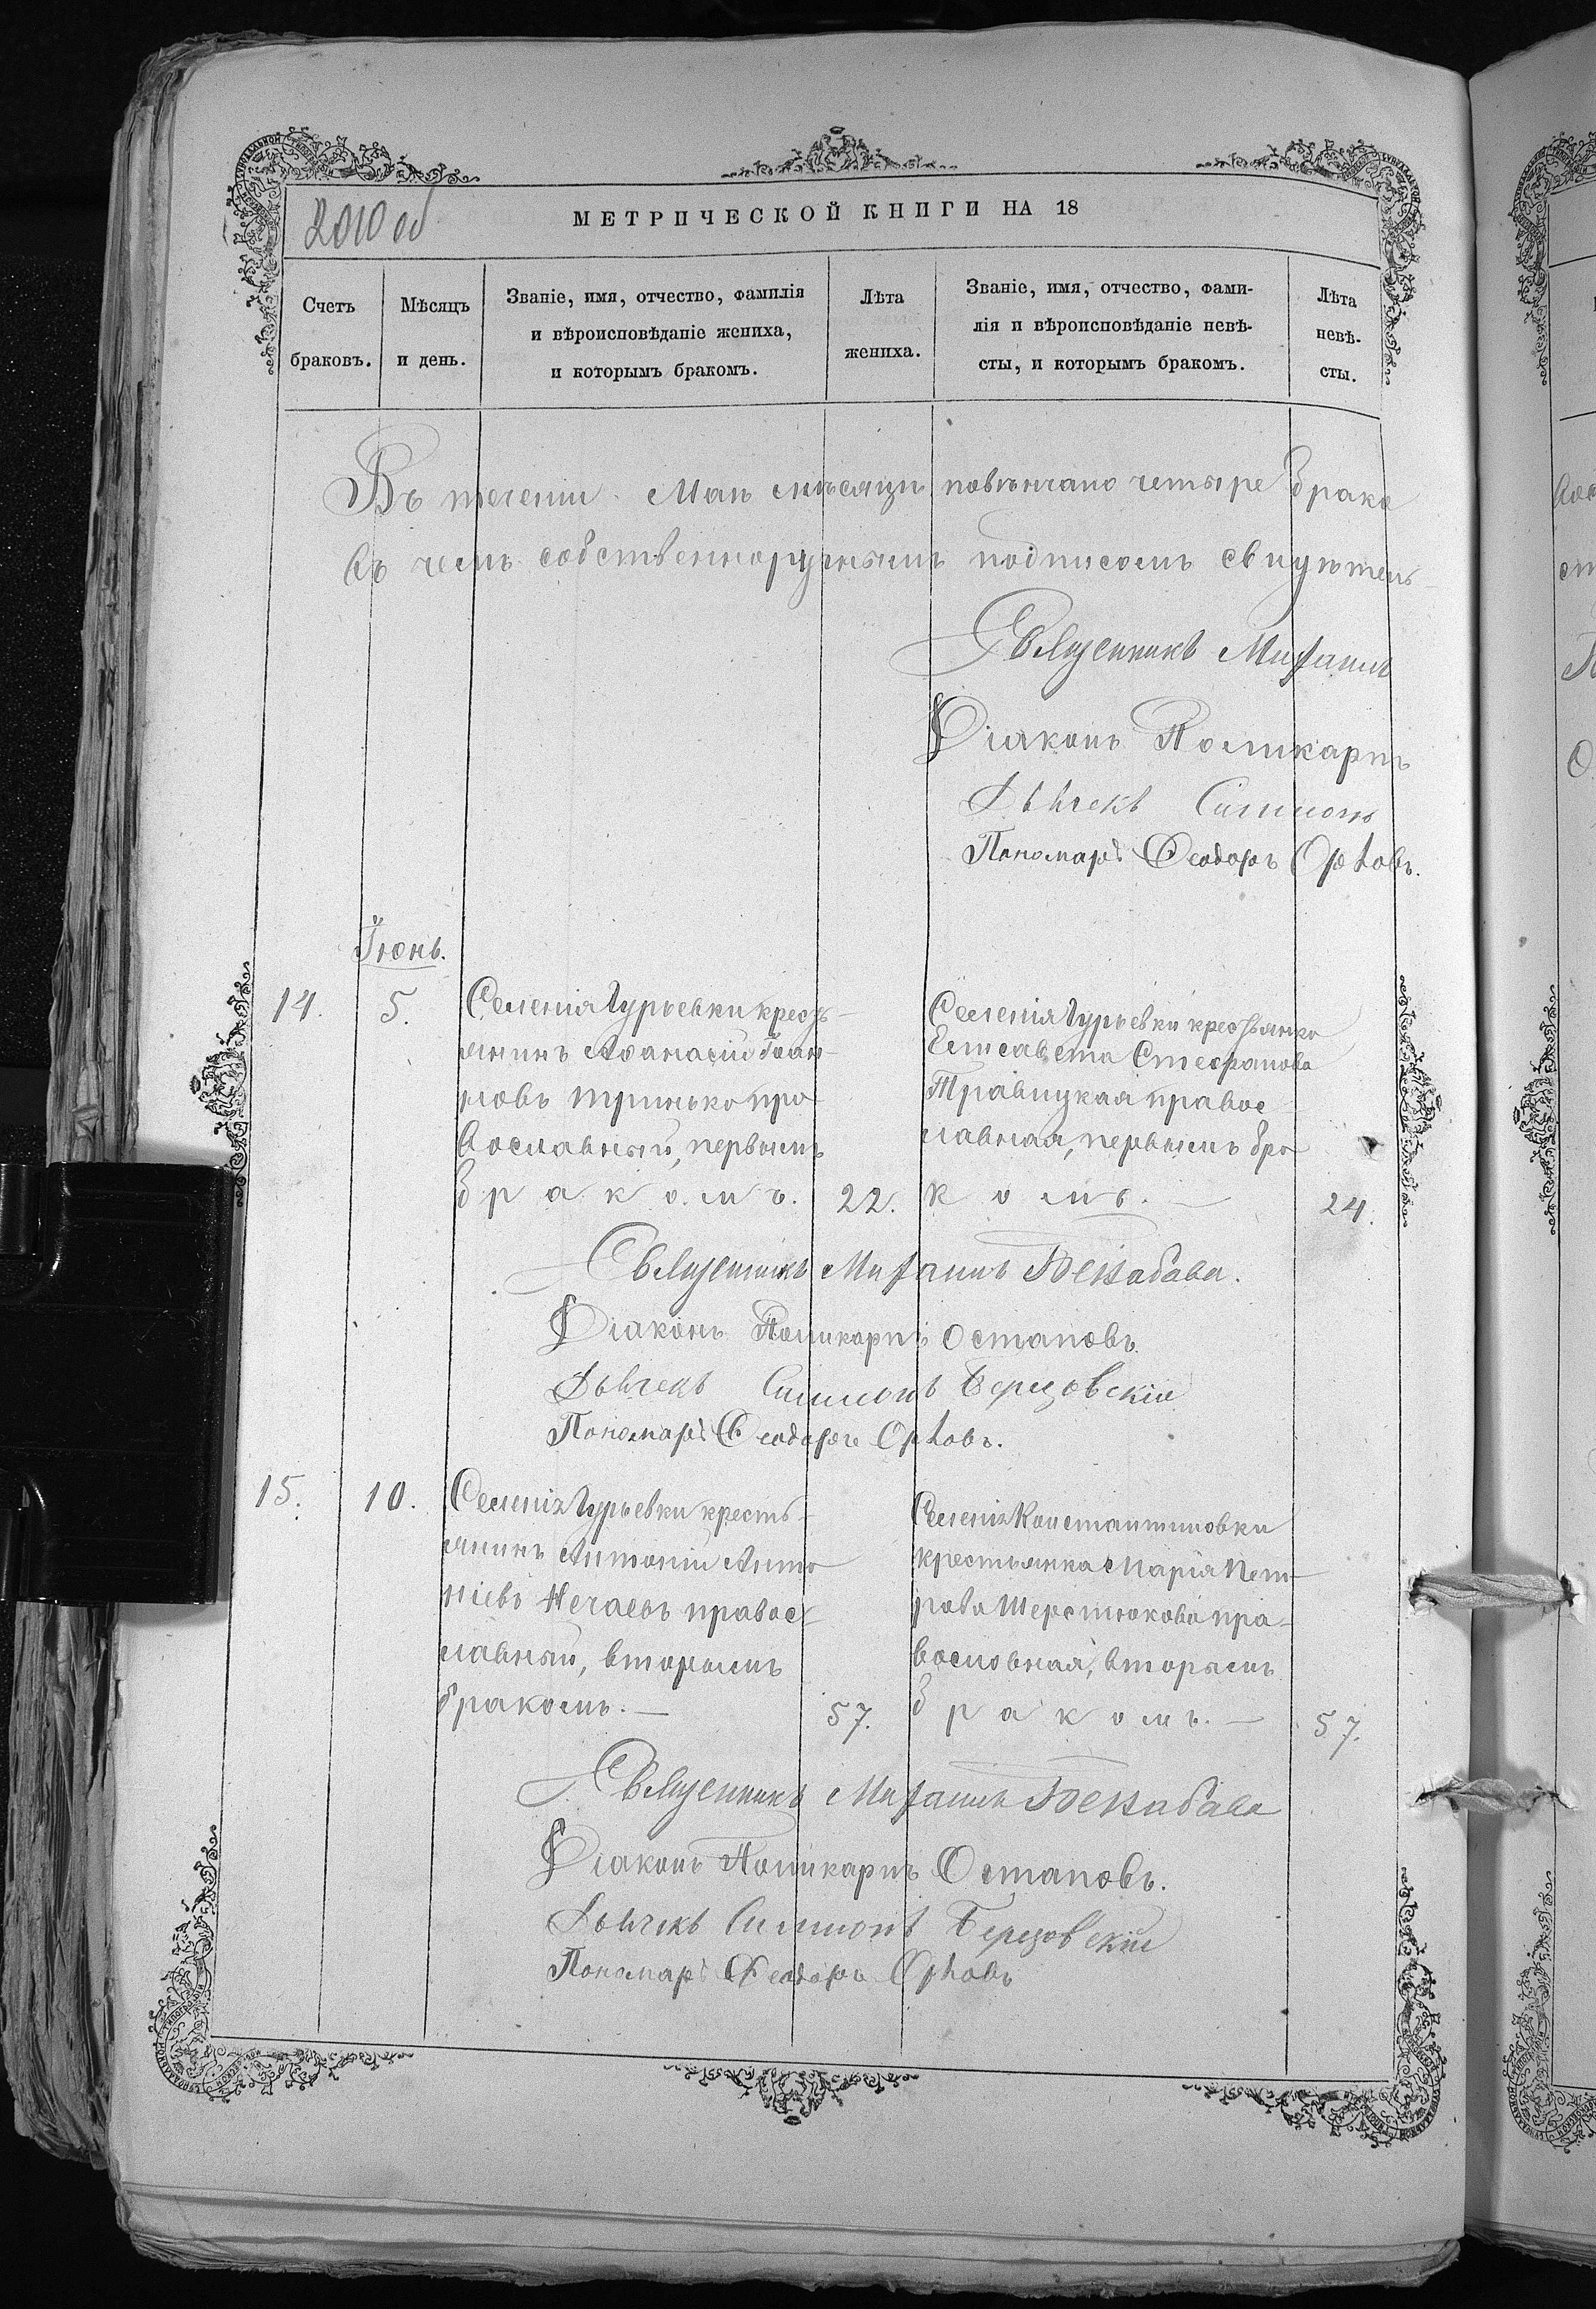 2010 об
МЕТРИЧЕСКОЙ КНИГИ НА 18
Счетъ
браковъ.
Мѣсяцъ
и день.
Званіе, имя, отчество, фамилія
и вѣроисповѣданіе жениха,
и которымъ бракомъ.
Лѣта
жениха.
Званіе, имя, отчество, фами-
лія и вѣроисповѣданіе невѣ-
сты, и которымъ бракомъ.
Лѣта
невѣ-
сты.
Въ теченіи Маѣ мѣсяцѣ повѣнчано четыре брака
въ чемъ собственноручнымъ подписомъ свидѣтель-
Священникъ Михаилъ
Діаконъ Поликарпъ
Дьячекъ Симеонъ
Пономарь Ѳеодоръ Орловъ.
Іюнь.
14.
5.
Селенія Гурьевки кресть-
янинъ Аѳанасій Іоан-
новъ Тринько пра-
вославный, первымъ
бракомъ.
22.
Селенія Гурьевки крестьянка
Елисавета Стефанова
Травицкая правос-
лавная, первымъ бра-
комъ. —
24.
Священникъ Михаилъ
Діаконъ Поликарпъ Остаповъ.
Дьячекъ Симеонъ Березовскій
Пономарь Ѳеодоръ Орловъ.
15.
10.
Селенія Гурьевки кресть-
янинъ Антоній Анто-
ніевъ Нечаевъ правос-
лавный, вторымъ
бракомъ. —
57.
Селенія Константиновки
крестьянка Марія Пет-
рова Шерстюкова пра-
вославная, вторымъ
бракомъ. —
57.
Священникъ Михаилъ
Діаконъ Поликарпъ Остаповъ.
Дьячекъ Симеонъ Березовскій
Пономарь Ѳеодоръ Орловъ